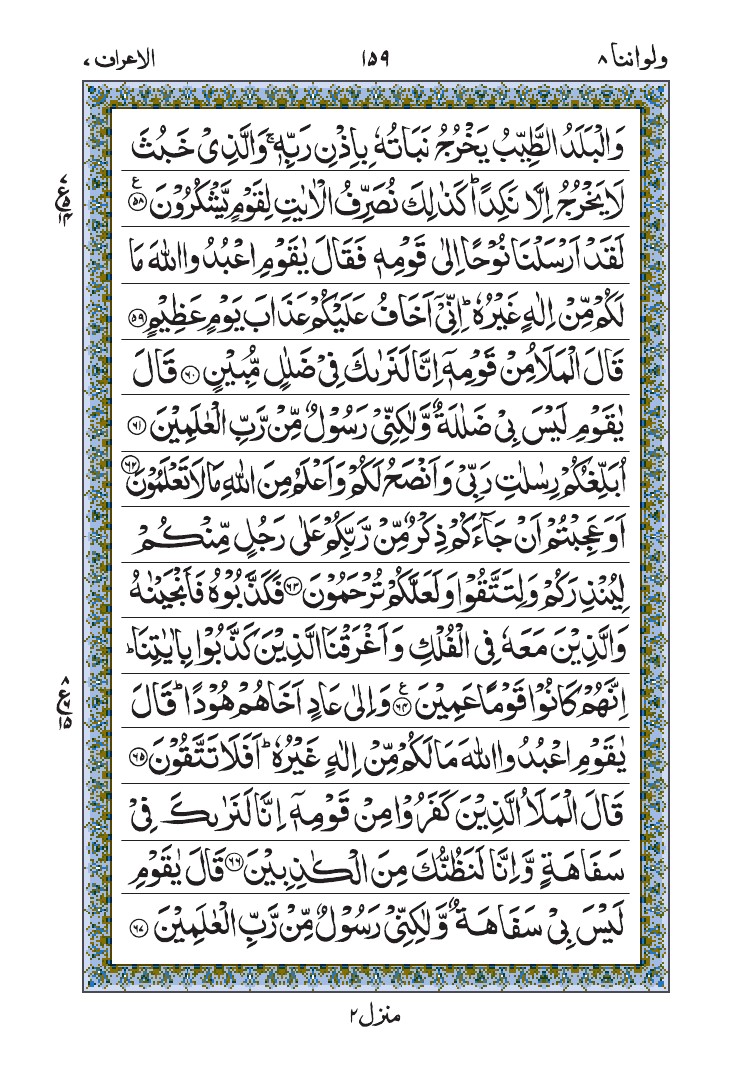 ولواننا ۸ ۱۵۹ الاعراف ۷
وَالْبَلَدُ الطَّيِّبُ يَخْرُجُ نَبَاتُهٗ بِاِذْنِ رَبِّهٖ ۚ وَالَّذِيْ خَبُثَ
لَا يَخْرُجُ اِلَّا نَكِدًا ؕ كَذٰلِكَ نُصَرِّفُ الْاٰيٰتِ لِقَوْمٍ يَّشْكُرُوْنَ ﴿۵۸﴾ ع
ع ۷ ۵ ۱۴
لَقَدْ اَرْسَلْنَا نُوْحًا اِلٰى قَوْمِهٖ فَقَالَ يٰقَوْمِ اعْبُدُوا اللّٰهَ مَا
لَكُمْ مِّنْ اِلٰهٍ غَيْرُهٗ ؕ اِنِّيْۤ اَخَافُ عَلَيْكُمْ عَذَابَ يَوْمٍ عَظِيْمٍ ﴿۵۹﴾
قَالَ الْمَلَاُ مِنْ قَوْمِهٖۤ اِنَّا لَنَرٰىكَ فِيْ ضَلٰلٍ مُّبِيْنٍ ﴿۶۰﴾ قَالَ
يٰقَوْمِ لَيْسَ بِيْ ضَلٰلَةٌ وَّلٰكِنِّيْ رَسُوْلٌ مِّنْ رَّبِّ الْعٰلَمِيْنَ ﴿۶۱﴾
اُبَلِّغُكُمْ رِسٰلٰتِ رَبِّيْ وَاَنْصَحُ لَكُمْ وَاَعْلَمُ مِنَ اللّٰهِ مَا لَا تَعْلَمُوْنَ ﴿۶۲﴾
اَوَعَجِبْتُمْ اَنْ جَآءَكُمْ ذِكْرٌ مِّنْ رَّبِّكُمْ عَلٰى رَجُلٍ مِّنْكُمْ
لِيُنْذِرَكُمْ وَلِتَتَّقُوْا وَلَعَلَّكُمْ تُرْحَمُوْنَ ﴿۶۳﴾ فَكَذَّبُوْهُ فَاَنْجَيْنٰهُ
وَالَّذِيْنَ مَعَهٗ فِي الْفُلْكِ وَاَغْرَقْنَا الَّذِيْنَ كَذَّبُوْا بِاٰيٰتِنَا ؕ
اِنَّهُمْ كَانُوْا قَوْمًا عَمِيْنَ ﴿۶۴﴾ ع وَاِلٰى عَادٍ اَخَاهُمْ هُوْدًا ؕ قَالَ
ع ۸ ۶ ۱۵
يٰقَوْمِ اعْبُدُوا اللّٰهَ مَا لَكُمْ مِّنْ اِلٰهٍ غَيْرُهٗ ؕ اَفَلَا تَتَّقُوْنَ ﴿۶۵﴾
قَالَ الْمَلَاُ الَّذِيْنَ كَفَرُوْا مِنْ قَوْمِهٖۤ اِنَّا لَنَرٰىكَ فِيْ
سَفَاهَةٍ وَّاِنَّا لَنَظُنُّكَ مِنَ الْكٰذِبِيْنَ ﴿۶۶﴾ قَالَ يٰقَوْمِ
لَيْسَ بِيْ سَفَاهَةٌ وَّلٰكِنِّيْ رَسُوْلٌ مِّنْ رَّبِّ الْعٰلَمِيْنَ ﴿۶۷﴾
منزل ۲